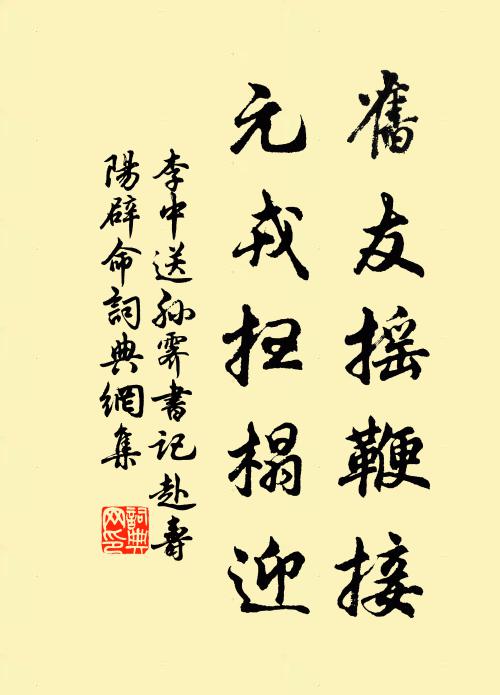 舊友搖鞭接
元戎扫榻迎
李中送孫霽書記赴壽
陽辟命詞典網集
詞典
网印